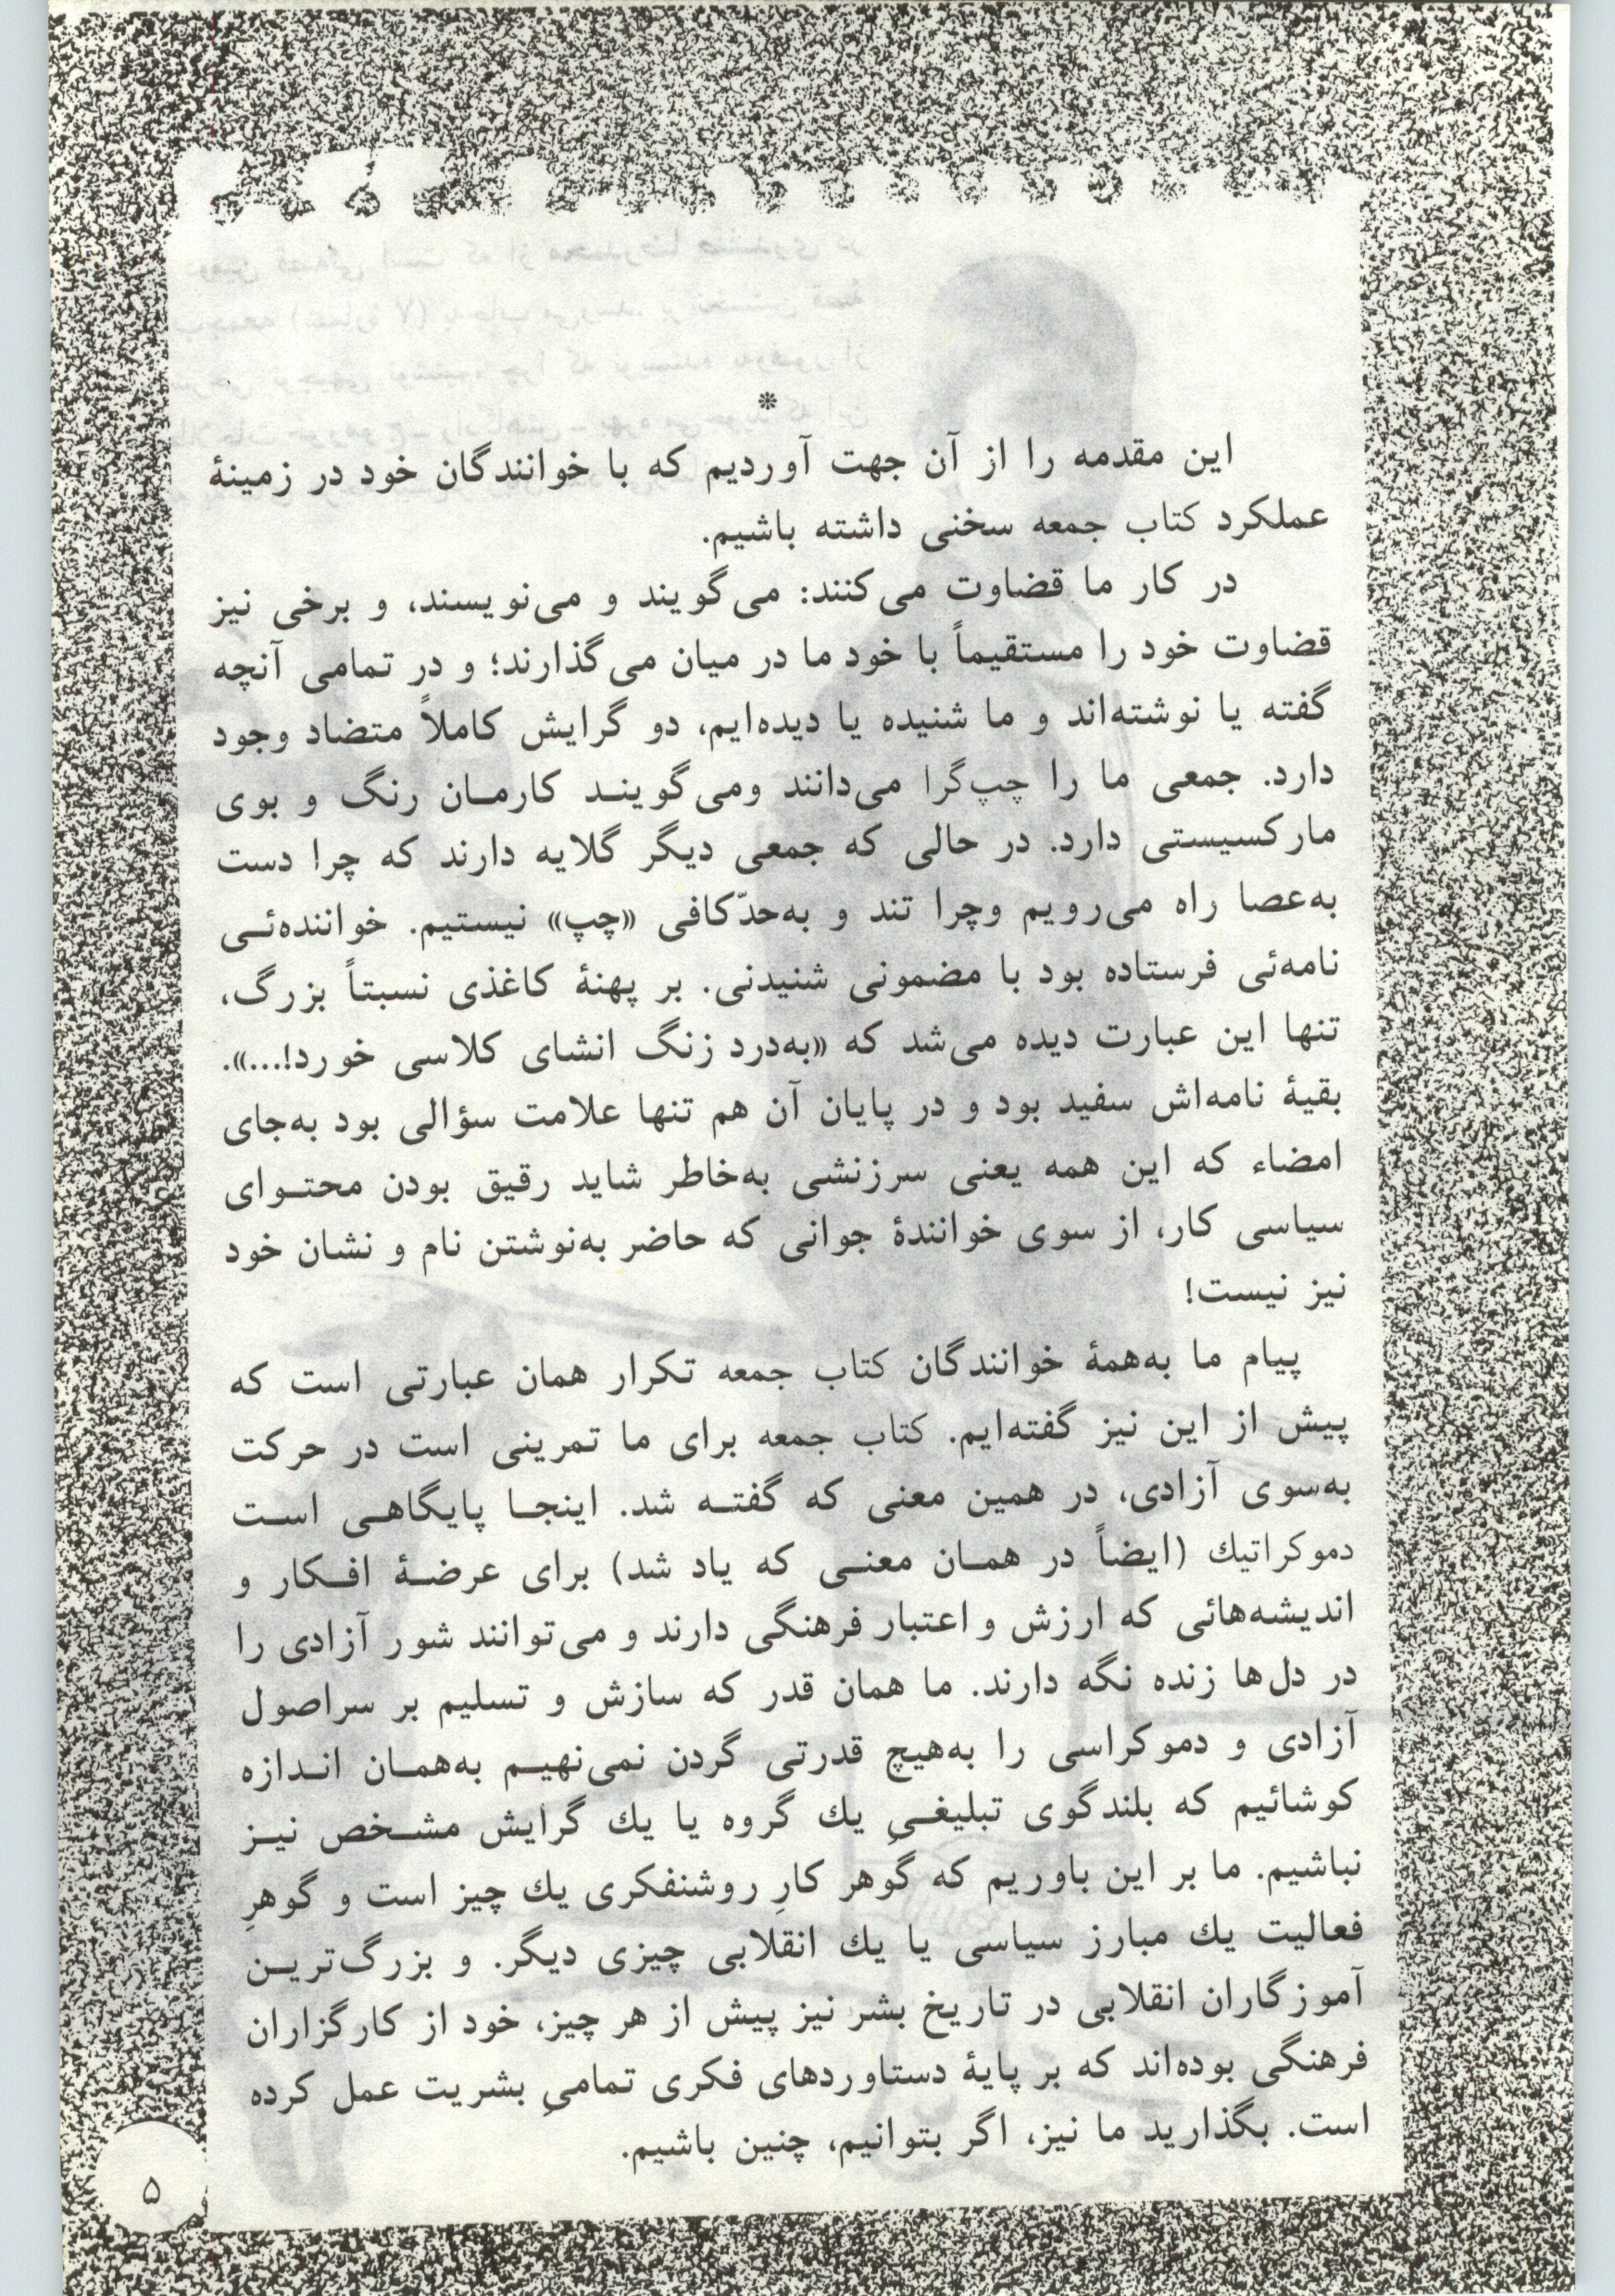 *
این مقدمه را از آن جهت آوردیم که با خوانندگان خود در زمینهٔ
عملکرد کتاب جمعه سخنی داشته باشیم.
در کار ما قضاوت می‌کنند: می‌گویند و می‌نویسند، و برخی نیز
قضاوت خود را مستقیماً با خود ما در میان می‌گذارند؛ و در تمامی آنچه
گفته یا نوشته‌اند و ما شنیده یا دیده‌ایم، دو گرایش کاملاً متضاد وجود
دارد. جمعی ما را چپ‌گرا می‌دانند ومی‌گوینـد کارمـان رنگ و بوی
مارکسیستی دارد. در حالی که جمعی دیگر گلایه دارند که چرا دست
به‌عصا راه می‌رویم وچرا تند و به‌حدّکافی «چپ» نیستیم. خواننده‌ئـی
نامه‌ئی فرستاده بود با مضمونی شنیدنی. بر پهنهٔ کاغذی نسبتاً بزرگ،
تنها این عبارت دیده می‌شد که «به‌درد زنگ انشای کلاسی خورد!...».
بقیهٔ نامه‌اش سفید بود و در پایان آن هم تنها علامت سؤالی بود به‌جای
امضاء که این همه یعنی سرزنشی به‌خاطر شاید رقیق بودن محتـوای
سیاسی کار، از سوی خوانندهٔ جوانی که حاضر به‌نوشتن نام و نشان خود
نیز نیست!
پیام ما به‌همهٔ خوانندگان کتاب جمعه تکرار همان عبارتی است که
پیش از این نیز گفته‌ایم. کتاب جمعه برای ما تمرینی است در حرکت
به‌سوی آزادی، در همین معنی که گفتـه شد. اینجـا پایگاهـی اسـت
دموکراتیك (ایضاً در همـان معنـی که یاد شد) برای عرضـهٔ افـکار و
اندیشه‌هائی که ارزش و اعتبار فرهنگی دارند و می‌توانند شور آزادی را
در دل‌ها زنده نگه دارند. ما همان قدر که سازش و تسلیم بر سراصول
آزادی و دموکراسی را به‌هیچ قدرتی گردن نمی‌نهیـم به‌همـان انـدازه
کوشائیم که بلندگوی تبلیغـیِ یك گروه یا یك گرایش مشـخص نیـز
نباشیم. ما بر این باوریم که گوهر کارِ روشنفکری یك چیز است و گوهرِ
فعالیت یك مبارز سیاسی یا یك انقلابی چیزی دیگر. و بزرگ‌تریـن
آموزگاران انقلابی در تاریخ بشر نیز پیش از هر چیز، خود از کارگزاران
فرهنگی بوده‌اند که بر پایهٔ دستاوردهای فکری تمامیِ بشریت عمل کرده
است. بگذارید ما نیز، اگر بتوانیم، چنین باشیم.
۵